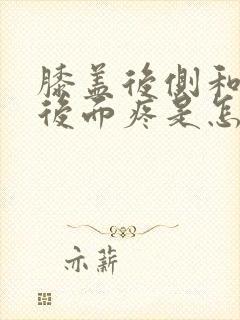 膝盖後侧和
後而疼是怎
亦薪